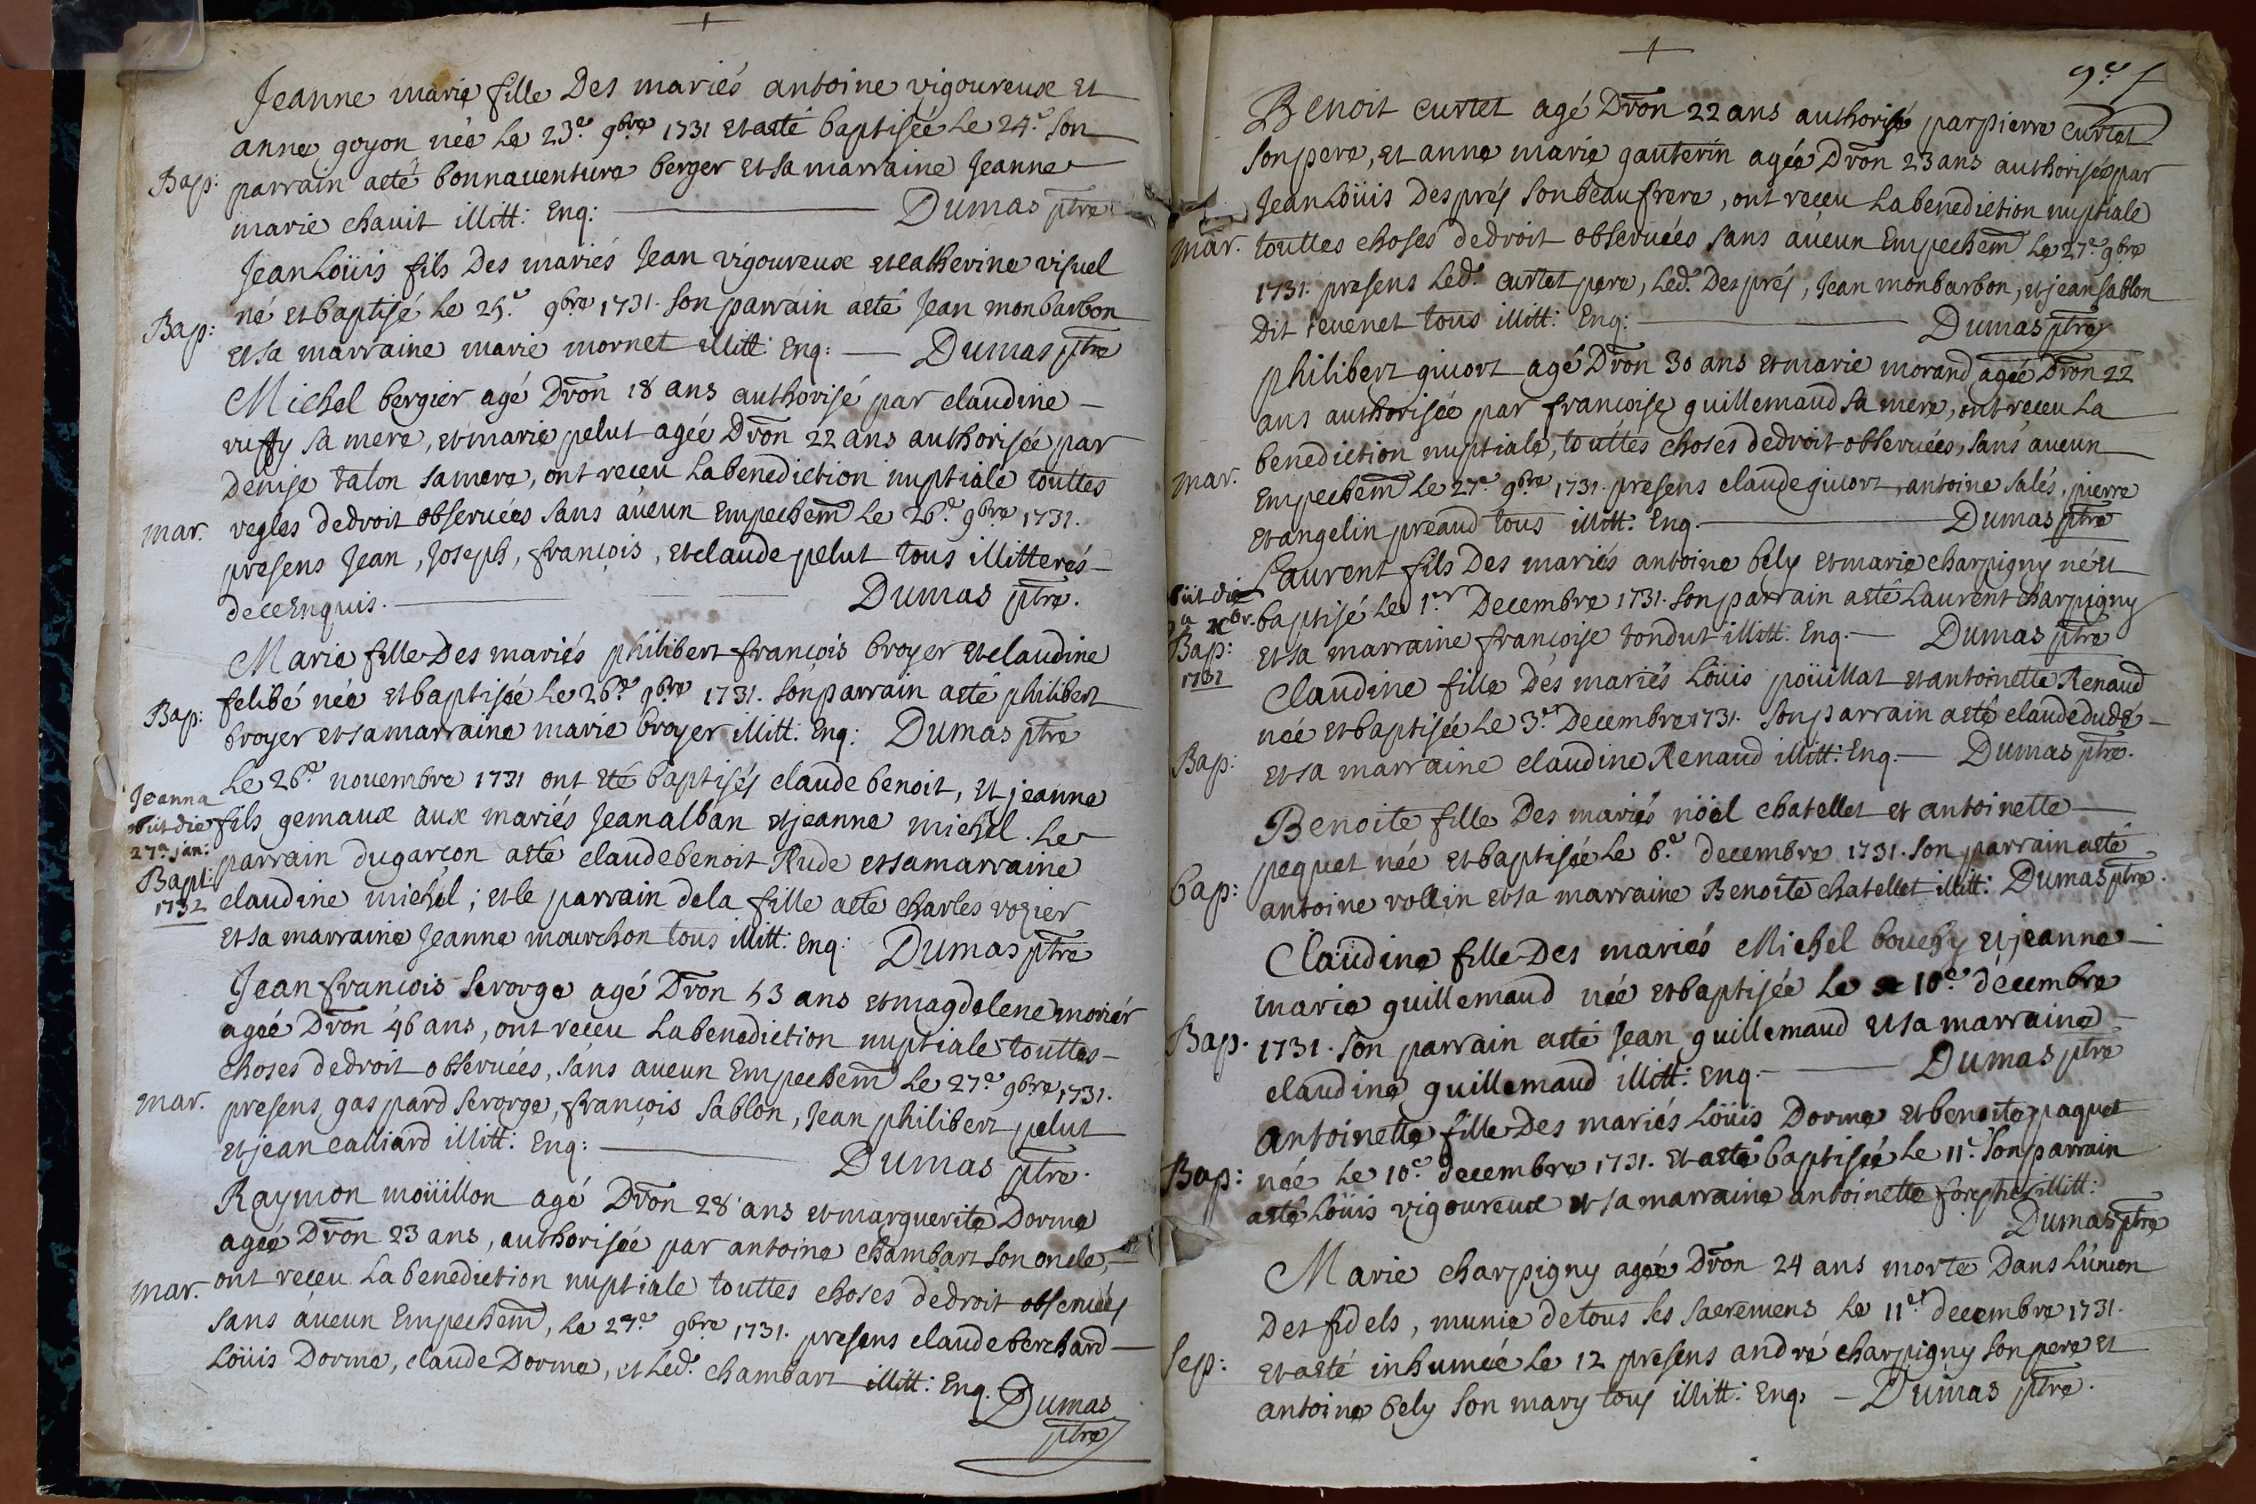 Jeanne marie fille Des mariés antoine vigoureux et
anne goyon née le 23.e 9bre 1731 et a eté baptisée le 24.e son
Bap: parrain a eté bonnaventure berger et sa marraine Jeanne
marie chauit illitt: Enq: Dumas ptre
Jean Loüis fils Des mariés Jean vigoureux et catherine visuel
né et baptisé le 25.e 9bre 1731. son parrain a eté Jean monbarbon
Bap: et sa marraine marie mornet illitt: Enq: Dumas ptre
Michel bergier agé Dvron 18 ans authorisé par claudine
ruffy sa mere, et marie pelut agée Dvron 22 ans authorisée par
Denise talon sa mere, ont receu la benediction nuptiale touttes
mar. regles de droit observées sans aucun Empechem le 26.e 9bre 1731.
presens Jean, Joseph, françois, et claude pelut tous illitterés
de ce Enquis. Dumas ptre.
Marie fille Des mariés philibert françois broyer et claudine
felibé née et baptisée le 26.e 9bre 1731. son parrain a eté philibert
Bap: broyer et sa marraine marie broyer illitt: Enq: Dumas ptre
Le 26.e novembre 1731 ont eté baptisés claude benoit, et jeanne
Jeanna obiit die 27.a jan: Bapt: 1732
fils gemaux aux mariés Jean alban et jeanne michel. Le
parrain du garçon a eté claude benoit Rude et sa marraine
claudine michel; et le parrain de la fille a eté charles rozier
et sa marraine Jeanne mourchon tous illitt: Enq: Dumas ptre
Jean françois Serorge agé Dvron 53 ans et magdelene morier
agée Dvron 46 ans, ont receu la benediction nuptiale touttes
choses de droit observées, sans aucun Empechem le 27.e 9bre 1731.
mar. presens gaspard Serorge, françois Sablon, Jean philibert pelut
et jean calliard illitt: Enq: Dumas ptre.
Raymon moüillon agé Dvron 28 ans et marguerite Dorme
agée Dvron 23 ans, authorisée par antoine chambart son oncle,
mar. ont receu la benediction nuptiale touttes choses de droit observées
sans aucun Empechem, le 27.e 9bre 1731. presens claude berchard
Loüis Dorme, claude Dorme, et Led. chambart illitt: Enq. Dumas
ptre
Benoit curtet agé Dvron 22 ans authorisé par pierre curtet
son pere, et anne marie gauterin agée Dvron 23 ans authorisée par
Jean Loüis Després son beau frere, ont receu la benediction nuptiale
mar. touttes choses de droit observées sans aucun Empechem le 27.e 9bre
1731. presens Led. curtet pere, Led. Després, Jean monbarbon, et jean sablon
Dit tevenet tous illitt: Enq: Dumas ptre
philibert givort agé Dvron 30 ans et marie morand agée Dvron 22
ans authorisée par françoise guillemaud sa mere, ont receu la
benediction nuptiale, touttes choses de droit observées, sans aucun
mar. Empechem le 27.e 9bre 1731. presens claude givort, antoine salés, pierre
et angelin preaud tous illitt: Enq. Dumas ptre
Laurent fils Des mariés antoine bely et marie charpigny né et
baptisé le 1.er Decembre 1731. son parrain a eté Laurent charpigny
Bap: et sa marraine françoise tondut illitt: Enq. Dumas ptre
1731
Claudine fille Des mariés Loüis poüillat et antoinette Renaud
née et baptisée le 3.e Decembre 1731. son parrain a eté claude dudé
Bap: et sa marraine claudine Renaud illitt: Enq. Dumas ptre.
Benoite fille Des mariés nöel chatellet et antoinette
pequet née et baptisée le 8.e decembre 1731. son parrain a eté
bap: antoine rollin et sa marraine Benoite chatellet illitt: Dumas ptre.
Claudine fille Des mariés Michel bouchy et jeanne
marie guillemaud née et baptisée le 10.e decembre
Bap. 1731. son parrain a eté Jean guillemaud et sa marraine
claudine guillemaud illitt: Enq. Dumas ptre
antoinette fille Des mariés Loüis Dorme et benoite paquet
Bap: née le 10.e decembre 1731. et a eté baptisée le 11.e son parrain
a eté Loüis vigoureux et sa marraine antoinette illitt:
Dumas ptre
Marie charpigny agée Dvron 24 ans morte Dans l'union
Des fidels, munie de tous ses sacremens le 11.e decembre 1731.
Sep: et a eté inhumée le 12 presens andré charpigny son pere et
antoine bely son mary tous illitt: Enq. Dumas ptre.